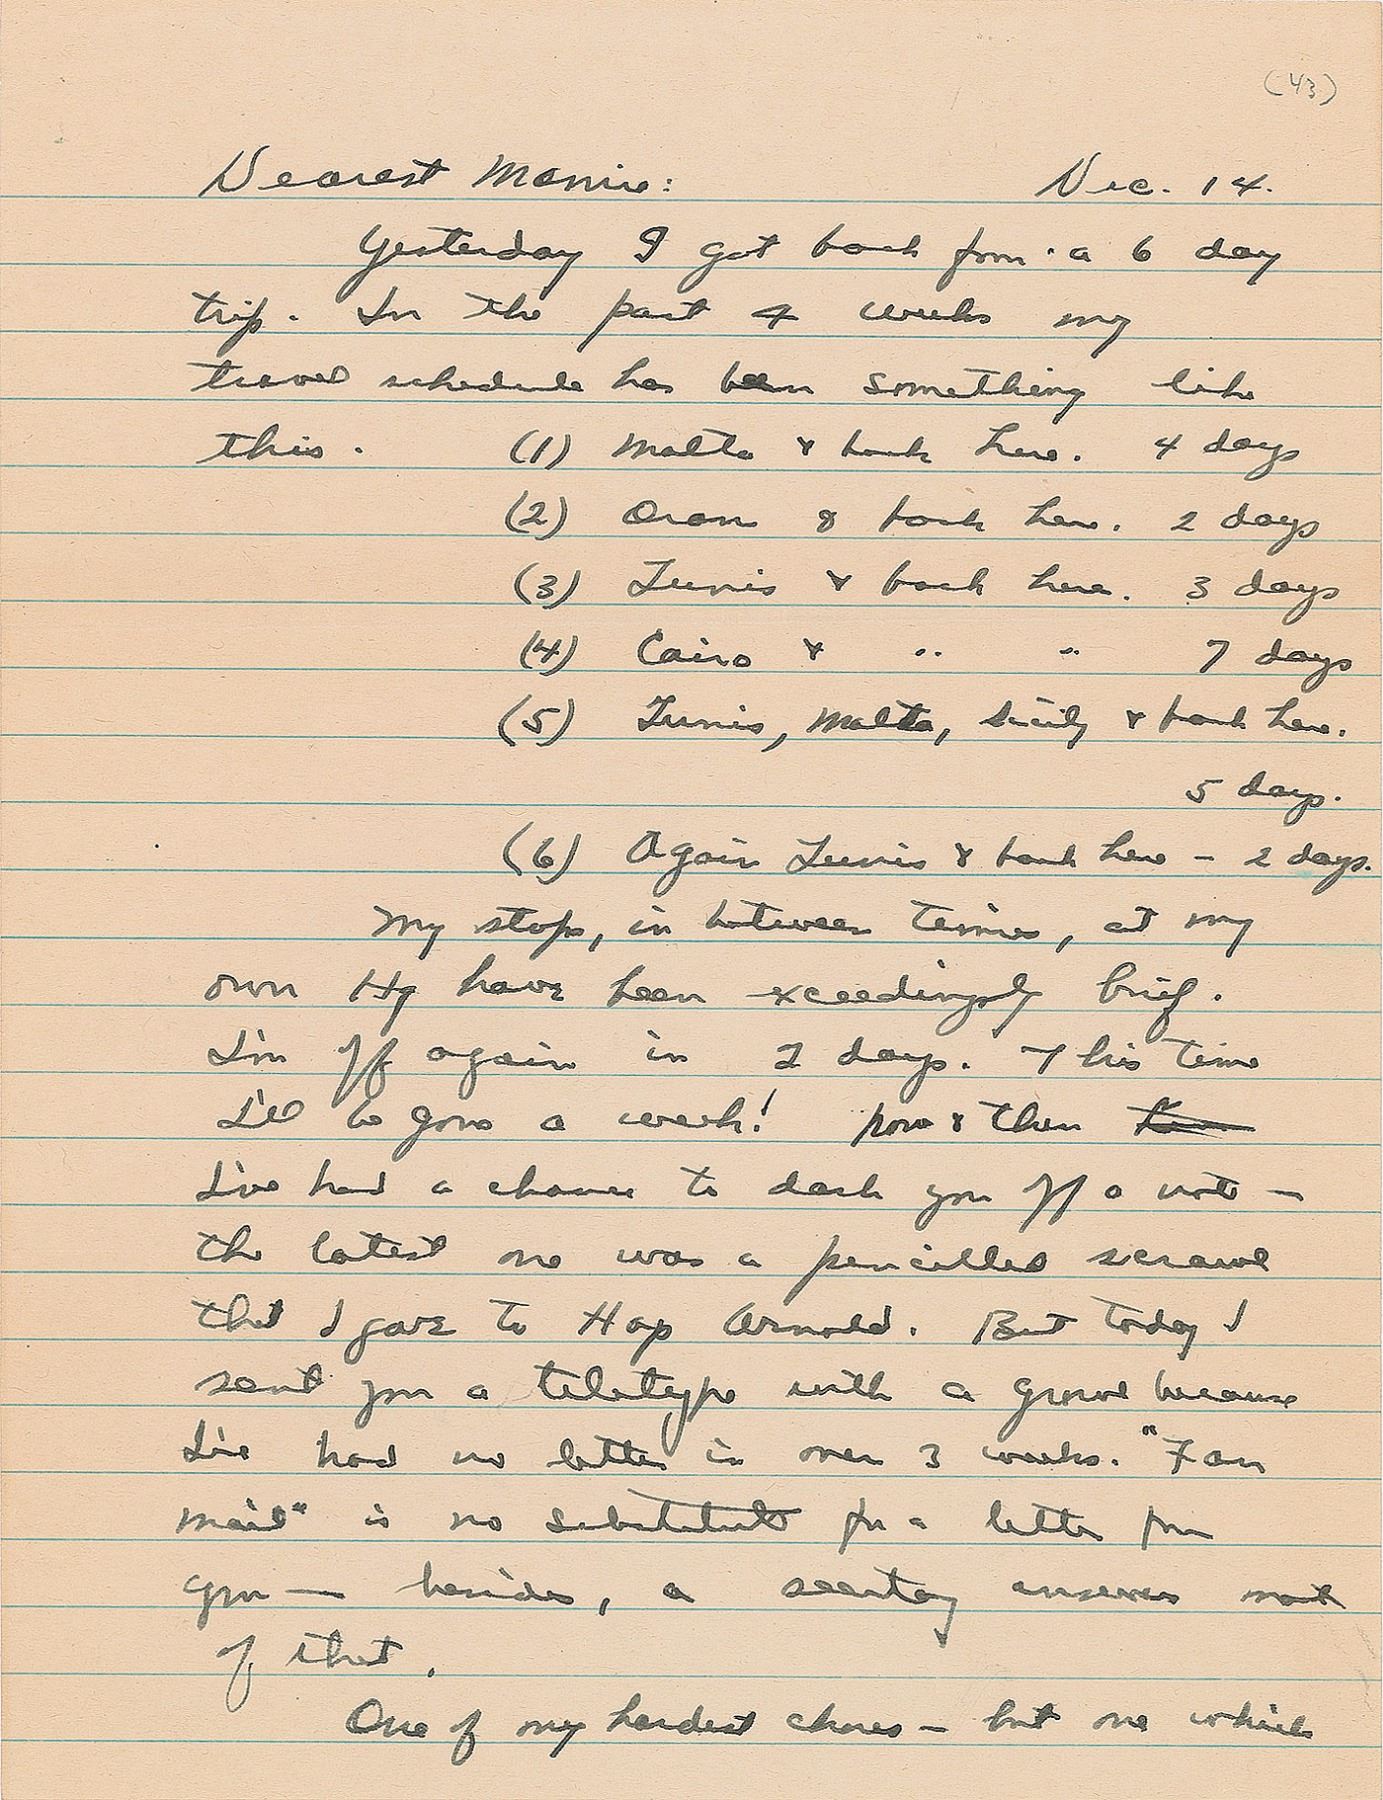 (43)
Dearest Mamie: Dec. 14.
Yesterday I got back from a 6 day
trip. In the past 4 weeks my
travel schedule has been something like
this. (1) Malta & back here. 4 days
(2) Oran & back here. 2 days
(3) Tunis & back here. 3 days
(4) Cairo & " " 7 days
(5) Tunis, Malta, Sicily & back here.
5 days.
(6) Again Tunis & back here - 2 days.
My stops, in between times, at my
own Hq have been exceedingly brief.
I'm off again in 2 days. This time
I'll be gone a week! Now & then
I've had a chance to dash you off a note -
the latest one was a pencilled scrawl
that I gave to Hap Arnold. But today I
sent you a teletype with a growl because
I've had no letter in over 3 weeks. "Fan
mail" is no substitute for a letter from
you — besides, a secretary answers most
of that.
One of my hardest chores - but one which